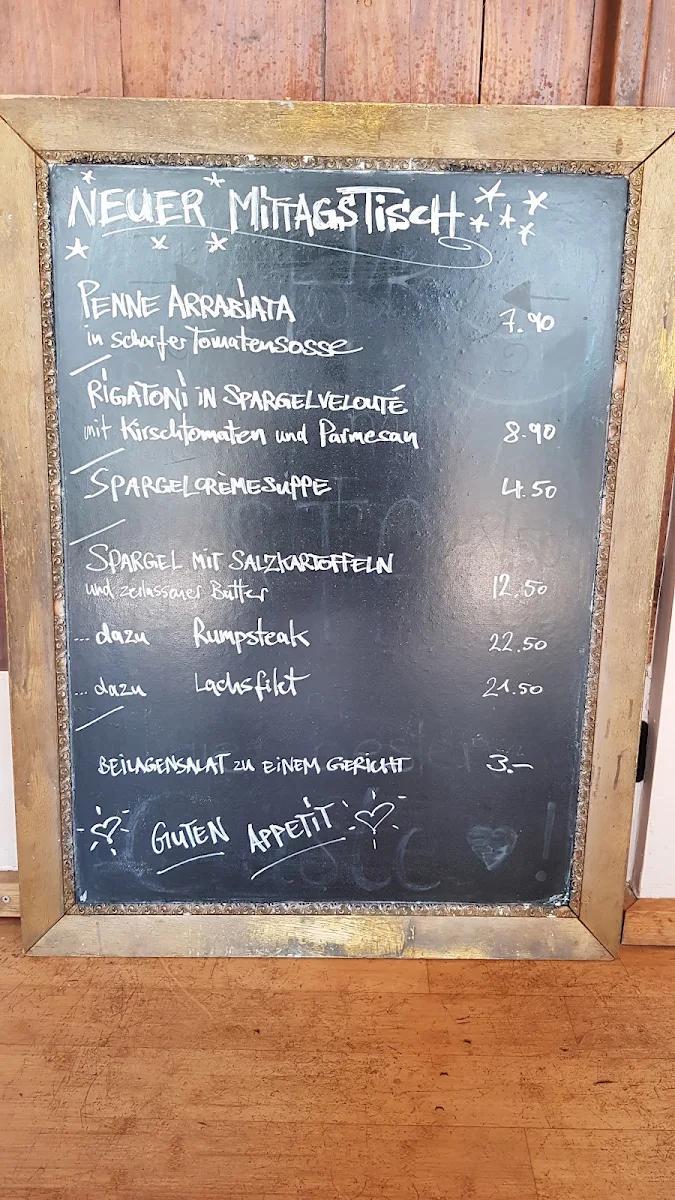 NEUER MITTAGSTISCH
PENNE ARRABIATA
in scharfer Tomatensosse 7.90
RIGATONI IN SPARGELVELOUTÉ
mit Kirschtomaten und Parmesan 8.90
SPARGELCRÈMESUPPE 4.50
SPARGEL MIT SALZKARTOFFELN
und zerlassener Butter 12.50
... dazu Rumpsteak 22.50
... dazu Lachsfilet 21.50
BEILAGENSALAT zu EINEM GERICHT 3.–
GUTEN APPETIT